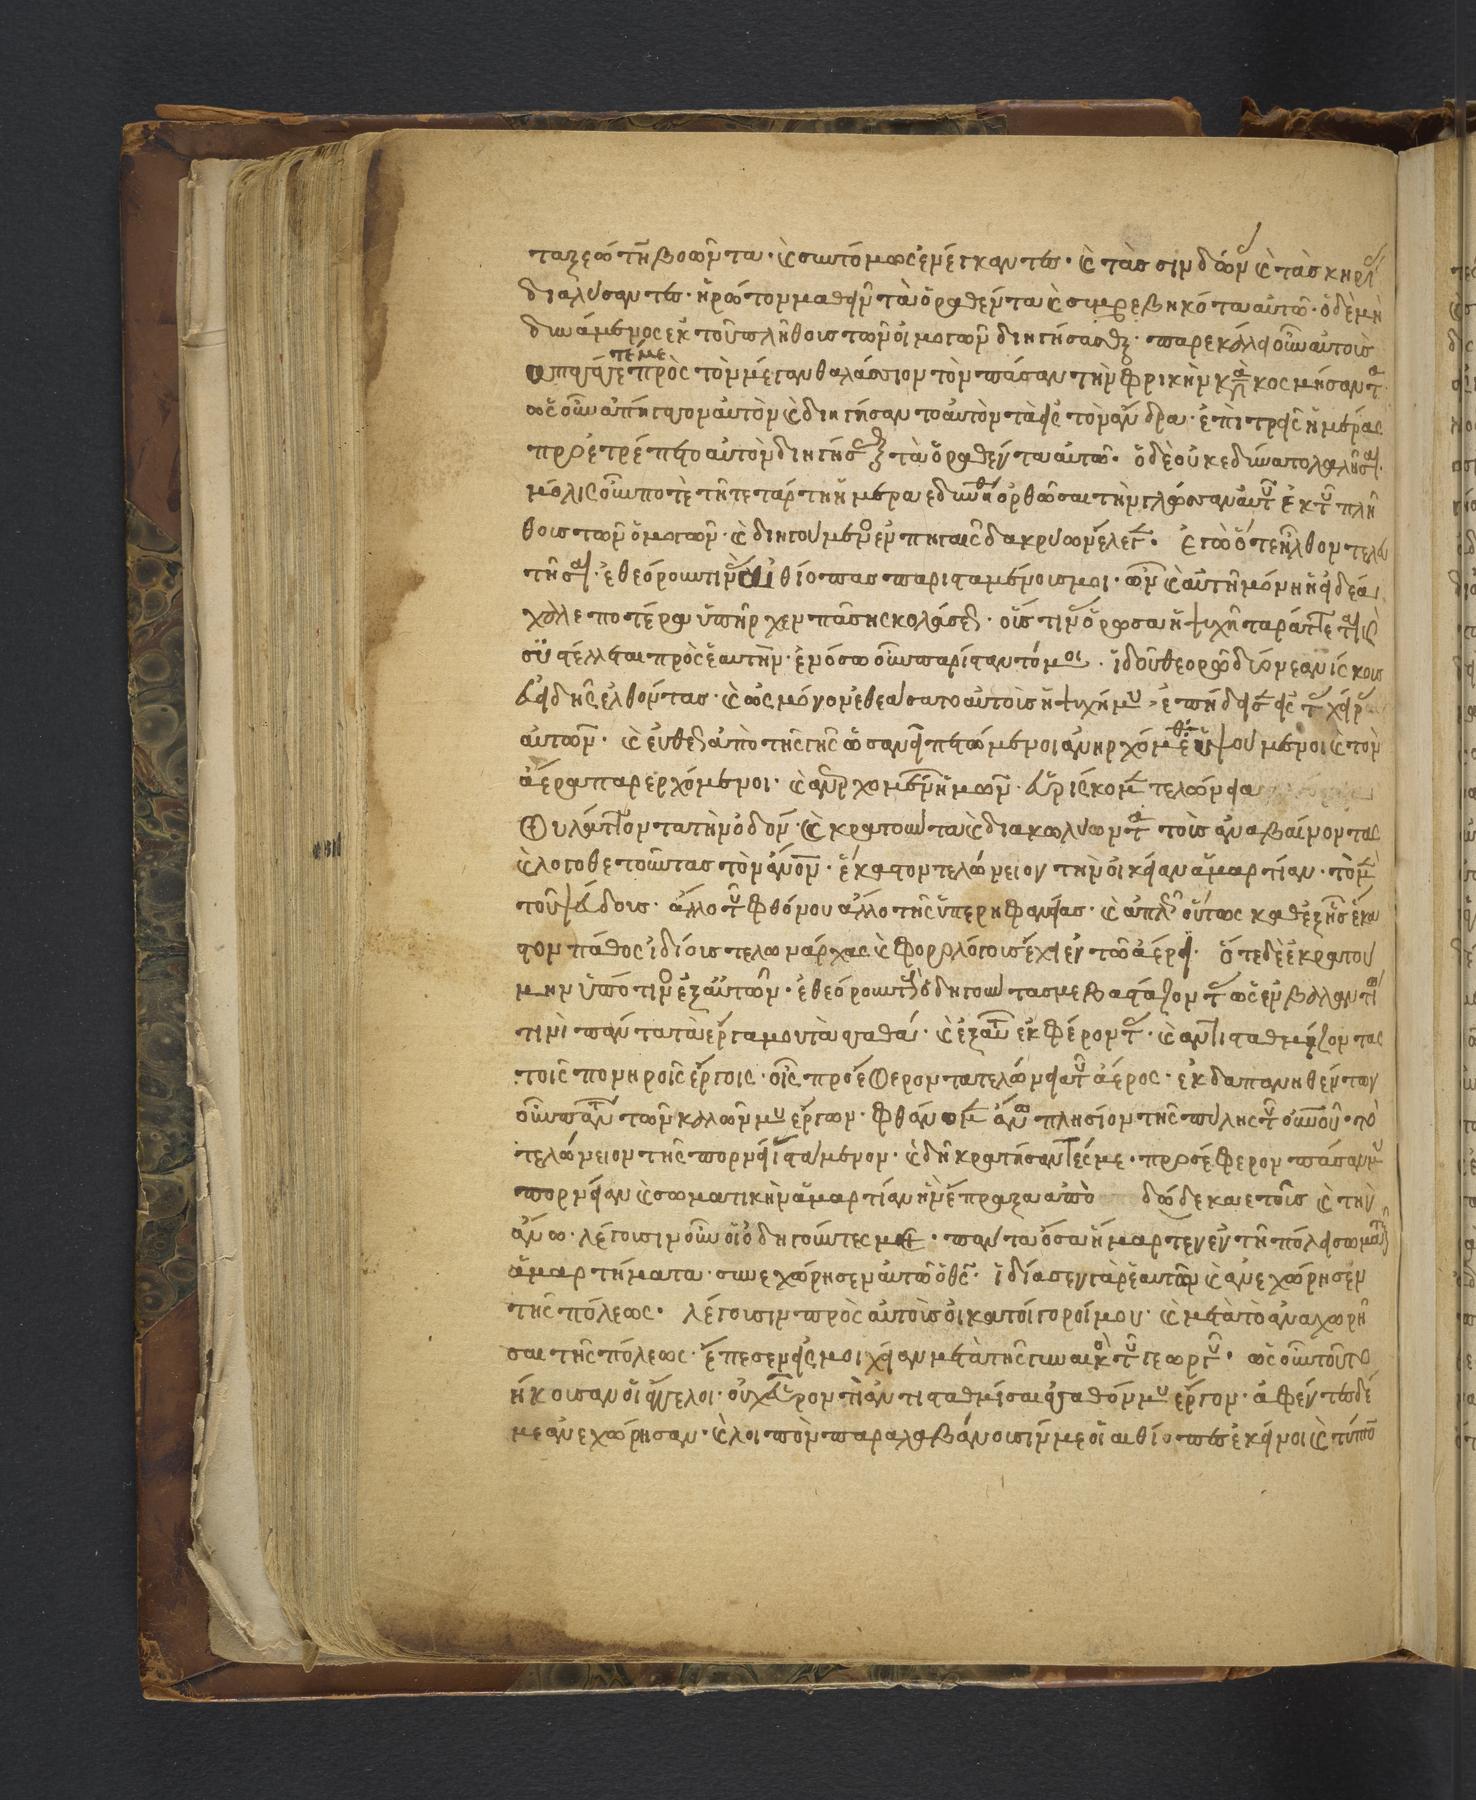 ταξεώτην βοῶντα· καὶ συντόμως ἐνέγκαντες· καὶ τὰς σινδών καὶ τὰς κηρί
διαλύσαντες· ἠρώτον μαθεῖν τὰ ὁραθέντα καὶ συμβεβηκότα αὐτῶ· ὁ δὲ μὴ
δυνάμενος ἐκ τοῦ πλήθους τῶν οἰμογῶν διηγήσασθαι· παρεκάλει οὖν αὐτοὺς
ἀπαγάγετέ με πρὸς τὸν μέγαν θαλάσσιον τὸν πᾶσαν τὴν ἀφρικὴν κατακοσμήσαντα·
ὡς οὖν ἀπήγαγον αὐτὸν καὶ διηγήσαντο αὐτὸν τὰ εἰς τὸν ἄνδρα· ἐπὶ τρεῖς ἡμέρας
προετρέπετο αὐτὸν διηγήσασθαι τὰ ὁραθέντα αὐτῶ· ὁ δὲ οὐκ εδύνατο λαλῆσαι·
μόλις οὖν ποτὲ τῆ τετάρτη ἡμέρα εδυνήθη ὀρθῶσαι τὴν γλῶσσαν αὐτοῦ ἐκ τοῦ πλή
θους τῶν ὀμογῶν· καὶ διηγούμενος ἐν πηγαῖς δακρύων ἔλεγεν· Ἐγὼ ὅτε ἦλθον τελευ
τῆσαι· ἐθεόρουν τινὰς αἰθίοπας παρισταμένους μοι· ὧν καὶ αὐτὴ μόνη ἡ ἰδέα
χαλεποτέρα ὑπῆρχεν πάσης κολάσεως· οὕς τινας ὁρῶσα ἡ ψυχὴ ταράττεται καὶ
συστέλλεται πρὸς ἑαυτήν· ἐν ὅσω οὖν παρίσταντό μοι· ἰδοὺ θεορῶ δύο νεανίσκους
εὐειδῆς ἐλθόντας· καὶ ὡς μόνον ἐθεάσατο αὐτοὺς ἡ ψυχή μου· ἐπήδησεν εἰς τὰς χεῖρας
αὐτῶν· καὶ εὐθέως ἀπὸ τῆς γῆς ὡσανεὶ πετώμενοι ἀνηρχόμεθα ὑψούμενοι καὶ τὸν
ἀέρα παρερχόμενοι· καὶ ἀνερχομένων ἡμῶν· εὑρίσκομεν τελώνεια
φυλάττοντα τὴν ὁδόν· καὶ κρατοῦντα καὶ διακωλύοντα τοὺς ἀναβαίνοντας
καὶ λογοθετοῦντας τὸν ἄνθρωπον· ἕκαστον τελώνειον τὴν οἰκείαν ἁμαρτίαν· τὸ μὲν
τοῦ ψεύδους· ἄλλο τοῦ φθόνου ἄλλο τῆς ὑπερηφανείας· καὶ ἁπλῶς οὕτως καθεξῆς ἕκα
στον πάθος ἰδίους τελωνάρχας καὶ φορολόγους ἔχει ἐν τῶ ἀέρι· ὅτε δὲ ἐκρατού
μην ὑπό τινος ἐξ αὐτῶν· ἐθεόρουν τοὺς ὁδηγοῦντας με βαστάζοντας ὡς ἐν βαλλαντίω
τινὶ πάντα τὰ ἔργα μου τὰ ἀγαθά· καὶ ἐξ αὐτῶν ἐκφέροντας· καὶ ἀντισταθμίζοντας
τοῖς πονηροῖς ἔργοις· οἷς προέφερον τὰ τελώνεια τοῦ ἀέρος· ἐκδαπανηθέντων
οὖν πάντων τῶν καλῶν μου ἔργων· φθάνομεν ἄνω πλησίον τῆς πύλης τοῦ οὐρανοῦ· τὸ
τελώνειον τῆς πορνείας ἱστάμενον· καὶ δὴ κρατήσαντές με· προσέφερον πᾶσάν μου
πορνείαν καὶ σωματικὴν ἁμαρτίαν ἣν ἔπραξα ἀπὸ δώδεκα ετοῦς καὶ τὴν
ἄνω· λέγουσιν οὖν οἱ ὁδηγοῦντες με· πάντα ὅσα ἥμαρτεν ἐν τῆ πόλει σωματικὰ
ἁμαρτήματα· συνεχώρησεν αὐτῶ ὁ θεός· ἰδίασεν γὰρ ἑαυτὸν καὶ ἀνεχώρησεν
τῆς πόλεως· λέγουσιν πρὸς αὐτοὺς οἱ κατοίγοροί μου· καὶ μετὰ τὸ ἀναχωρῆ
σαι τῆς πόλεως· ἔπεσεν εἰς μοιχείαν μετὰ τῆς γυναικὸς τοῦ γεωργοῦ· ὡς οὖν τοῦτο
ἤκουσαν οἱ ἄγγελοι· οὐχ εὗρον τί ἀντισταθμίσαι ἀγαθόν μου ἔργον· ἀφέντες δέ
με ἀνεχώρησαν· καὶ λοιπὸν παραλαβάνουσίν με οἱ αἰθίοπες ἐκεῖνοι καὶ τύπτο